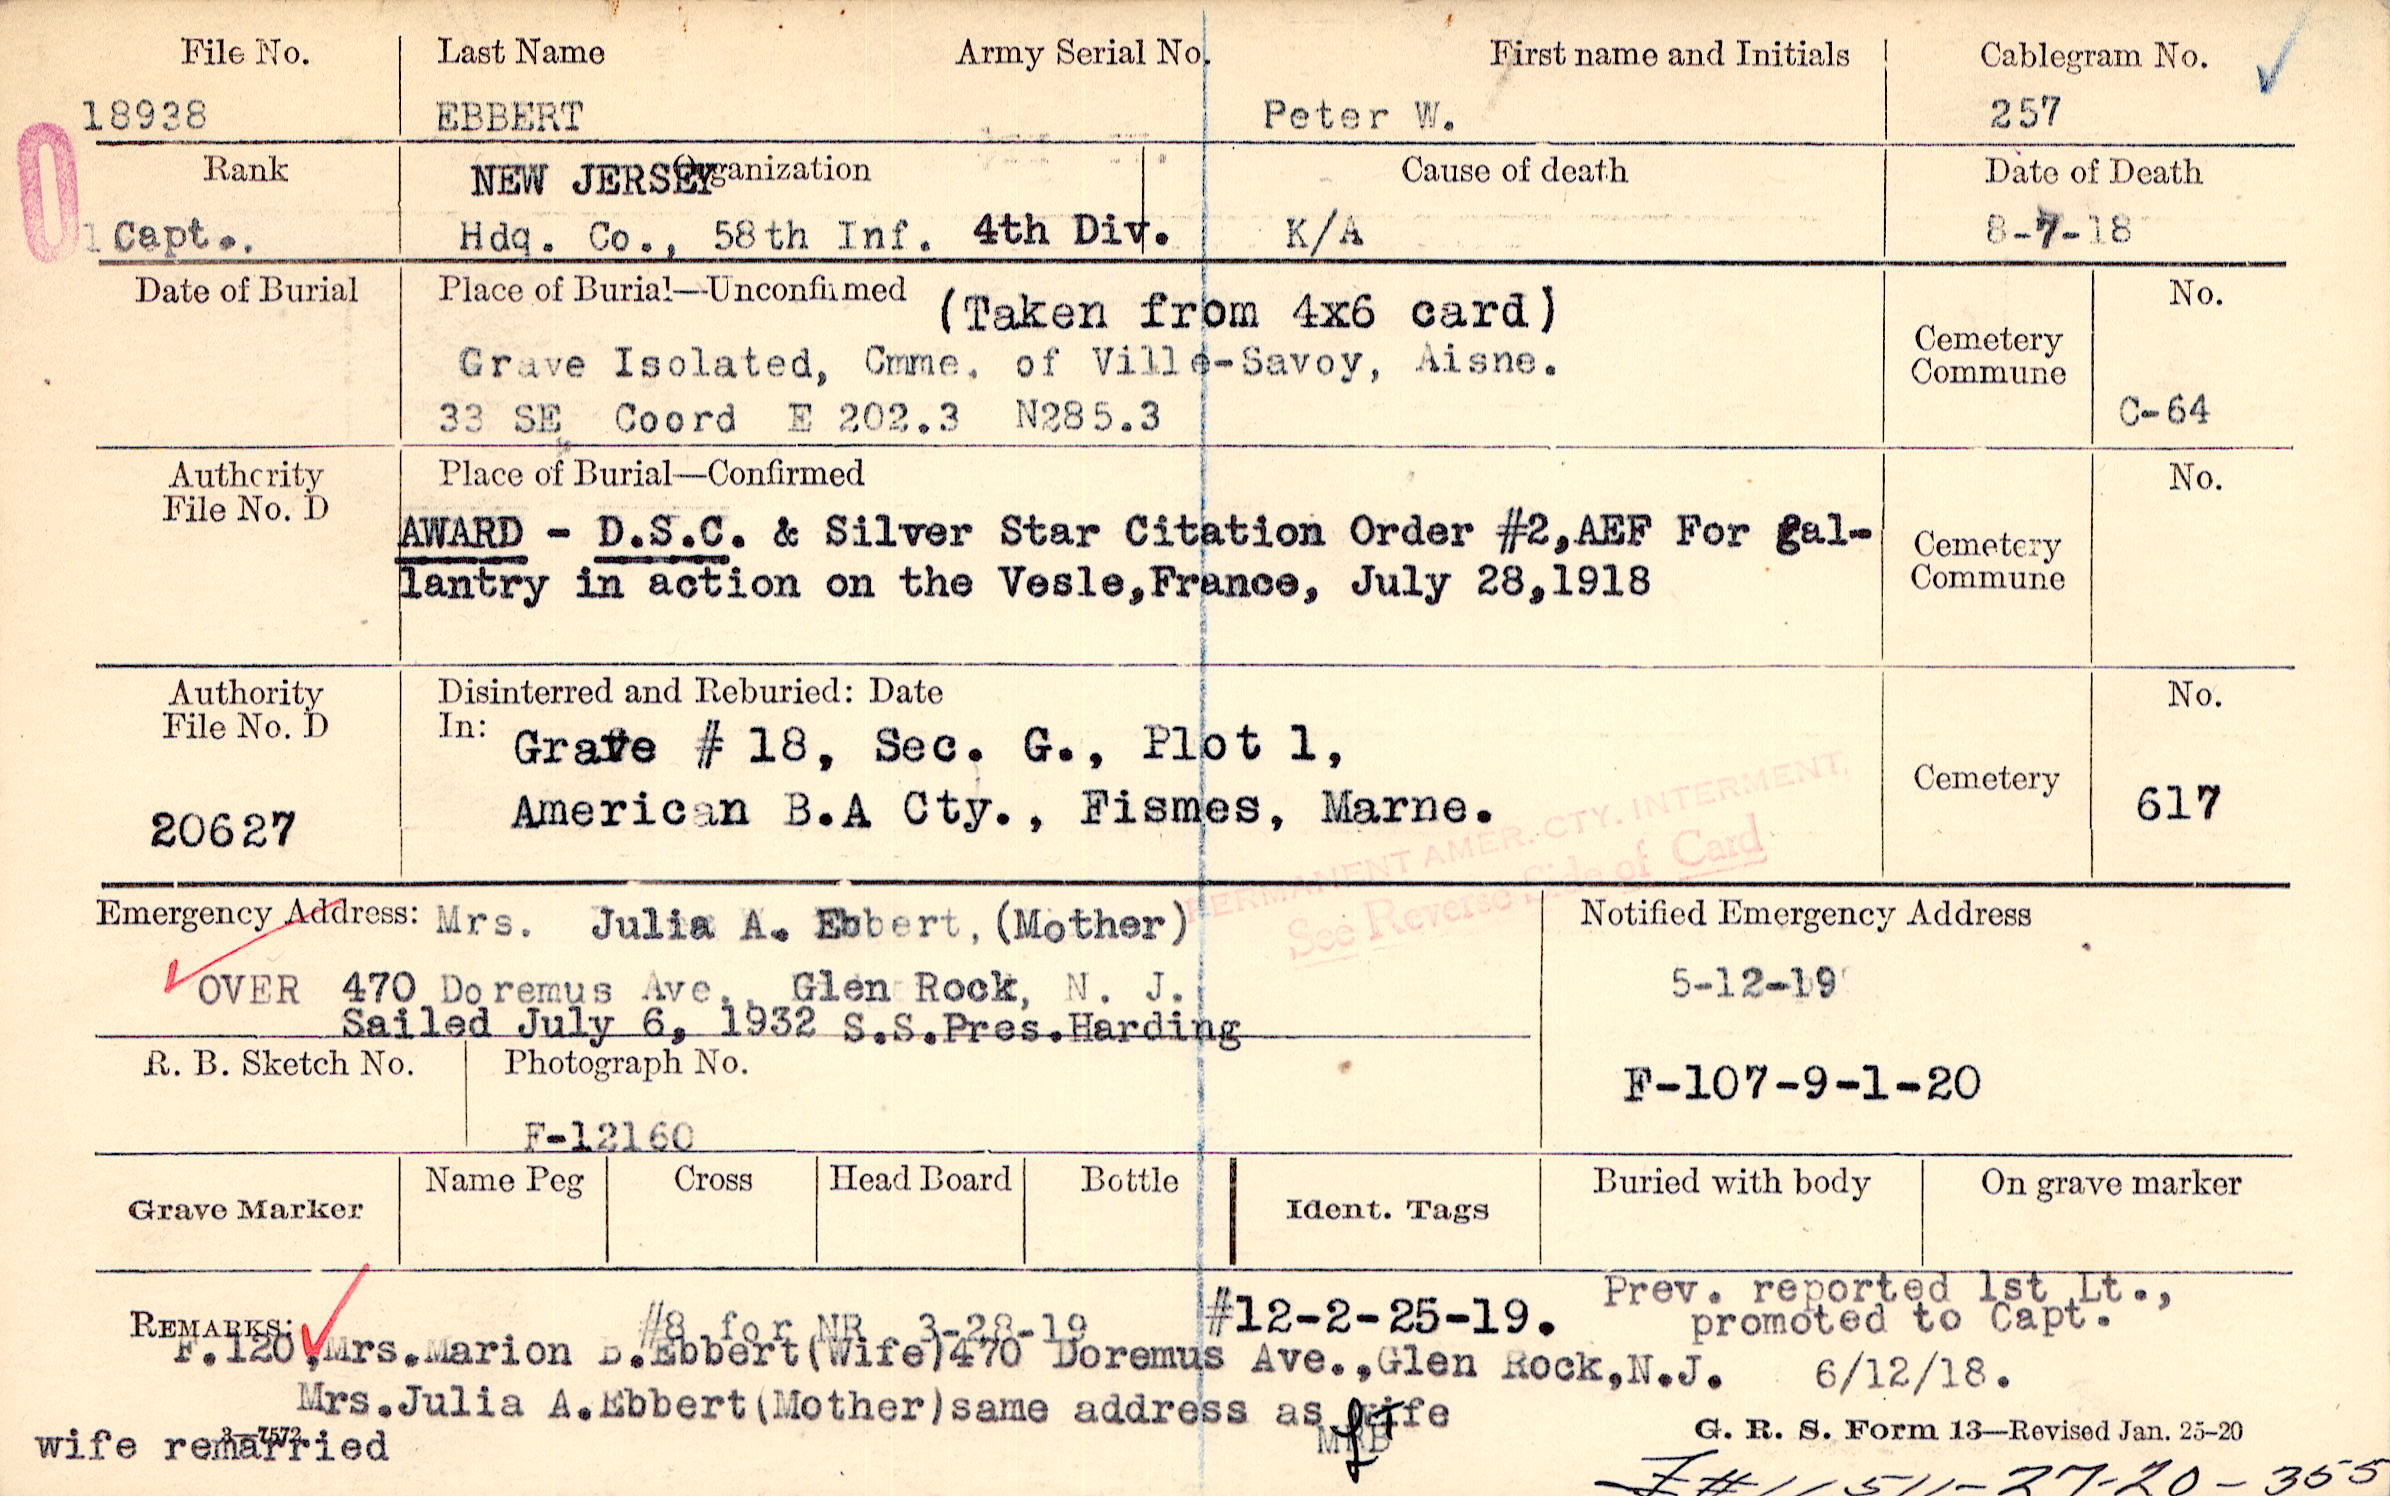 File No. Last Name Army Serial No. First name and Initials Cablegram No.
18938 EBBERT Peter W. 257
Rank NEW JERSEY Organization Cause of death Date of Death
Capt.. Hdq. Co., 58th Inf. 4th Div. K/A 8-7-18
Date of Burial Place of Burial—Unconfirmed (Taken from 4x6 card) No.
Grave Isolated, Cmme. of Ville-Savoy, Aisne. Cemetery
Commune
33 SE Coord E 202.3 N285.3 C-64
Authority Place of Burial—Confirmed No.
File No. D
AWARD - D.S.C. & Silver Star Citation Order #2,AEF For gal-
lantry in action on the Vesle,France, July 28,1918
Cemetery
Commune
Authority Disinterred and Reburied: Date No.
File No. D In: Grave # 18, Sec. G., Plot 1,
Cemetery
20627 American B.A Cty., Fismes, Marne. 617
PERMANENT AMER. CTY. INTERMENT,
See Reverse Side of Card
Emergency Address: Mrs. Julia A. Ebbert, (Mother) Notified Emergency Address
OVER 470 Doremus Ave. Glen Rock, N. J. 5-12-19
Sailed July 6, 1932 S.S.Pres.Harding
R. B. Sketch No. Photograph No.
F-107-9-1-20
F-12160
Grave Marker Name Peg Cross Head Board Bottle Ident. Tags Buried with body On grave marker
REMARKS: #8 for NR 3-28-19 #12-2-25-19. Prev. reported 1st Lt.,
promoted to Capt.
F.120.Mrs.Marion B.Ebbert(Wife)470 Doremus Ave.,Glen Rock,N.J. 6/12/18.
Mrs.Julia A.Ebbert(Mother)same address as wife
wife remarried
3—7572
MRB
G. R. S. Form 13—Revised Jan. 25-20
27-20-355